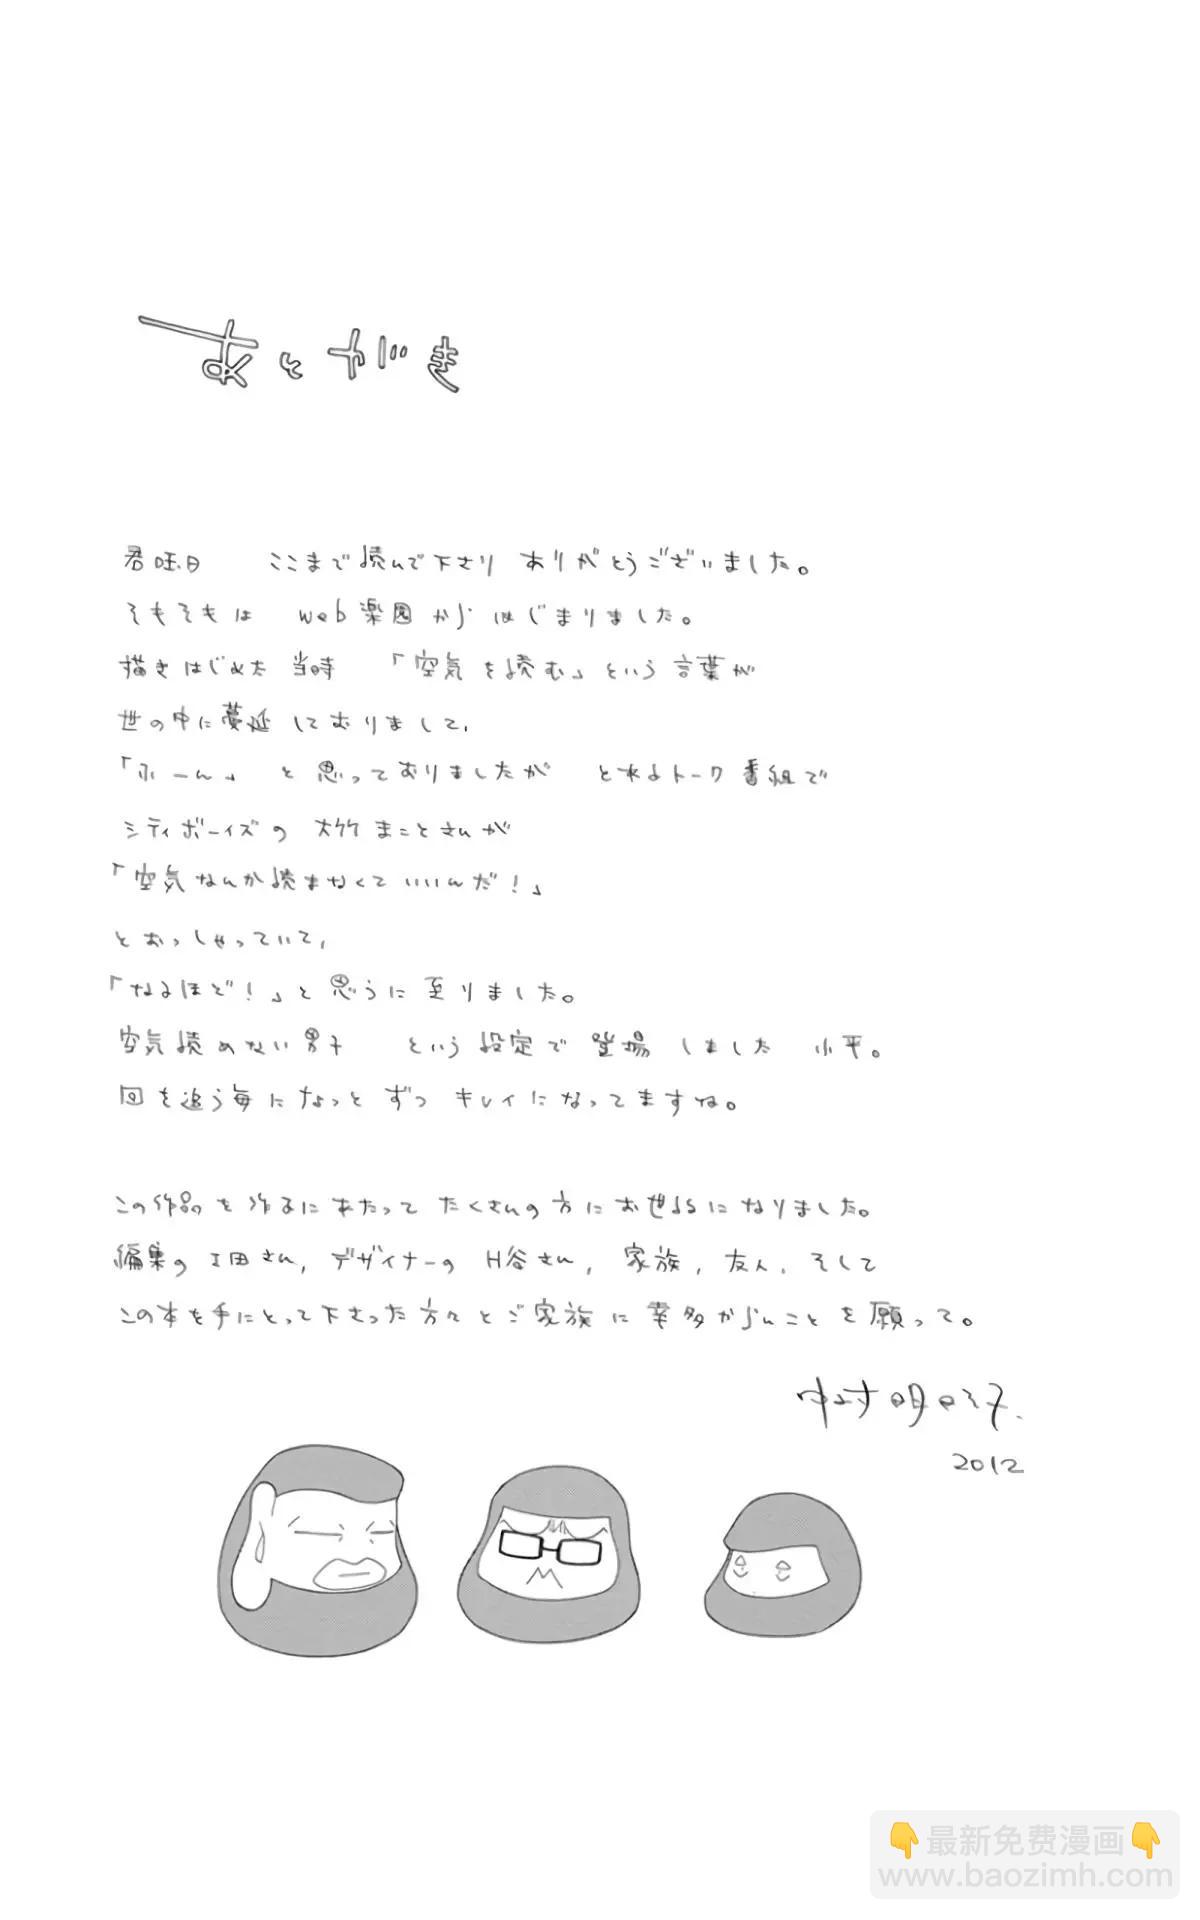 あとがき
君曜日 ここまで読んで下さり ありがとうございました。
そもそもは web楽園から はじまりました。
描きはじめた 当時 「空気を読む」という 言葉が
世の中に蔓延 しておりまして、
「ふーん」 と 思っておりましたが とあるトーク番組で
シティボーイズの 大竹まことさんが
「空気なんか読まなくていいんだ！」
とおっしゃっていて、
「なるほど！」と 思うに至りました。
空気読めない男子 という設定で 登場しました 小平。
回を追う毎になっと ずつ キレイになってますね。
この作品を作るにあたって たくさんの方にお世話になりました。
編集の 工田さん, デザイナーの H谷さん, 家族, 友人, そして
この本を手にとって下さった方々とご家族に 幸多からんことを願って。
中村明日美子.
2012
👇最新免费漫画👇
www.baozimh.com